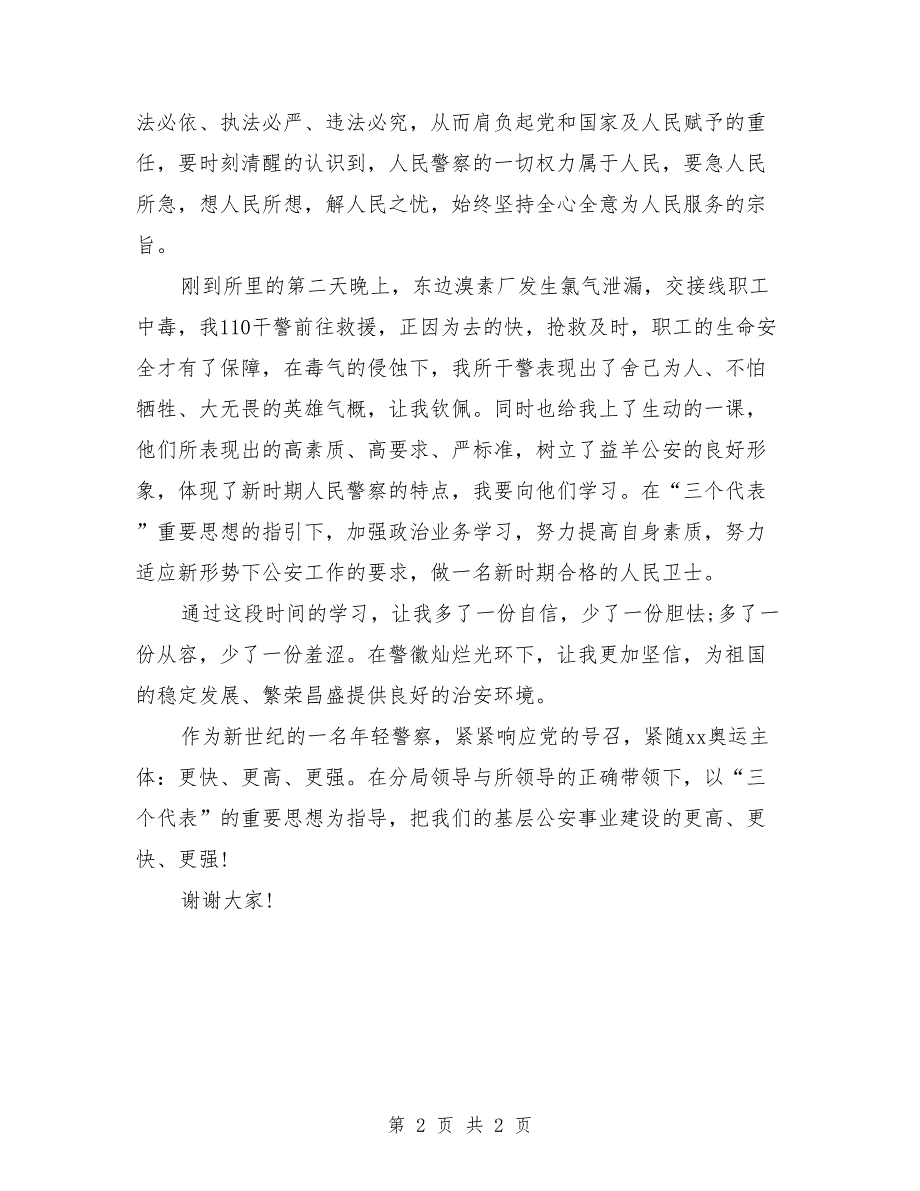 法必依、执法必严、违法必究，从而肩负起党和国家及人民赋予的重
任，要时刻清醒的认识到，人民警察的一切权力属于人民，要急人民
所急，想人民所想，解人民之忧，始终坚持全心全意为人民服务的宗
旨。
刚到所里的第二天晚上，东边溴素厂发生氯气泄漏，交接线职工
中毒，我110干警前往救援，正因为去的快，抢救及时，职工的生命安
全才有了保障，在毒气的侵蚀下，我所干警表现出了舍己为人、不怕
牺牲、大无畏的英雄气概，让我钦佩。同时也给我上了生动的一课，
他们所表现出的高素质、高要求、严标准，树立了益羊公安的良好形
象，体现了新时期人民警察的特点，我要向他们学习。在“三个代表
”重要思想的指引下，加强政治业务学习，努力提高自身素质，努力
适应新形势下公安工作的要求，做一名新时期合格的人民卫士。
通过这段时间的学习，让我多了一份自信，少了一份胆怯;多了一
份从容，少了一份羞涩。在警徽灿烂光环下，让我更加坚信，为祖国
的稳定发展、繁荣昌盛提供良好的治安环境。
作为新世纪的一名年轻警察，紧紧响应党的号召，紧随xx奥运主
体：更快、更高、更强。在分局领导与所领导的正确带领下，以“三
个代表”的重要思想为指导，把我们的基层公安事业建设的更高、更
快、更强!
谢谢大家!
第 2 页 共 2 页